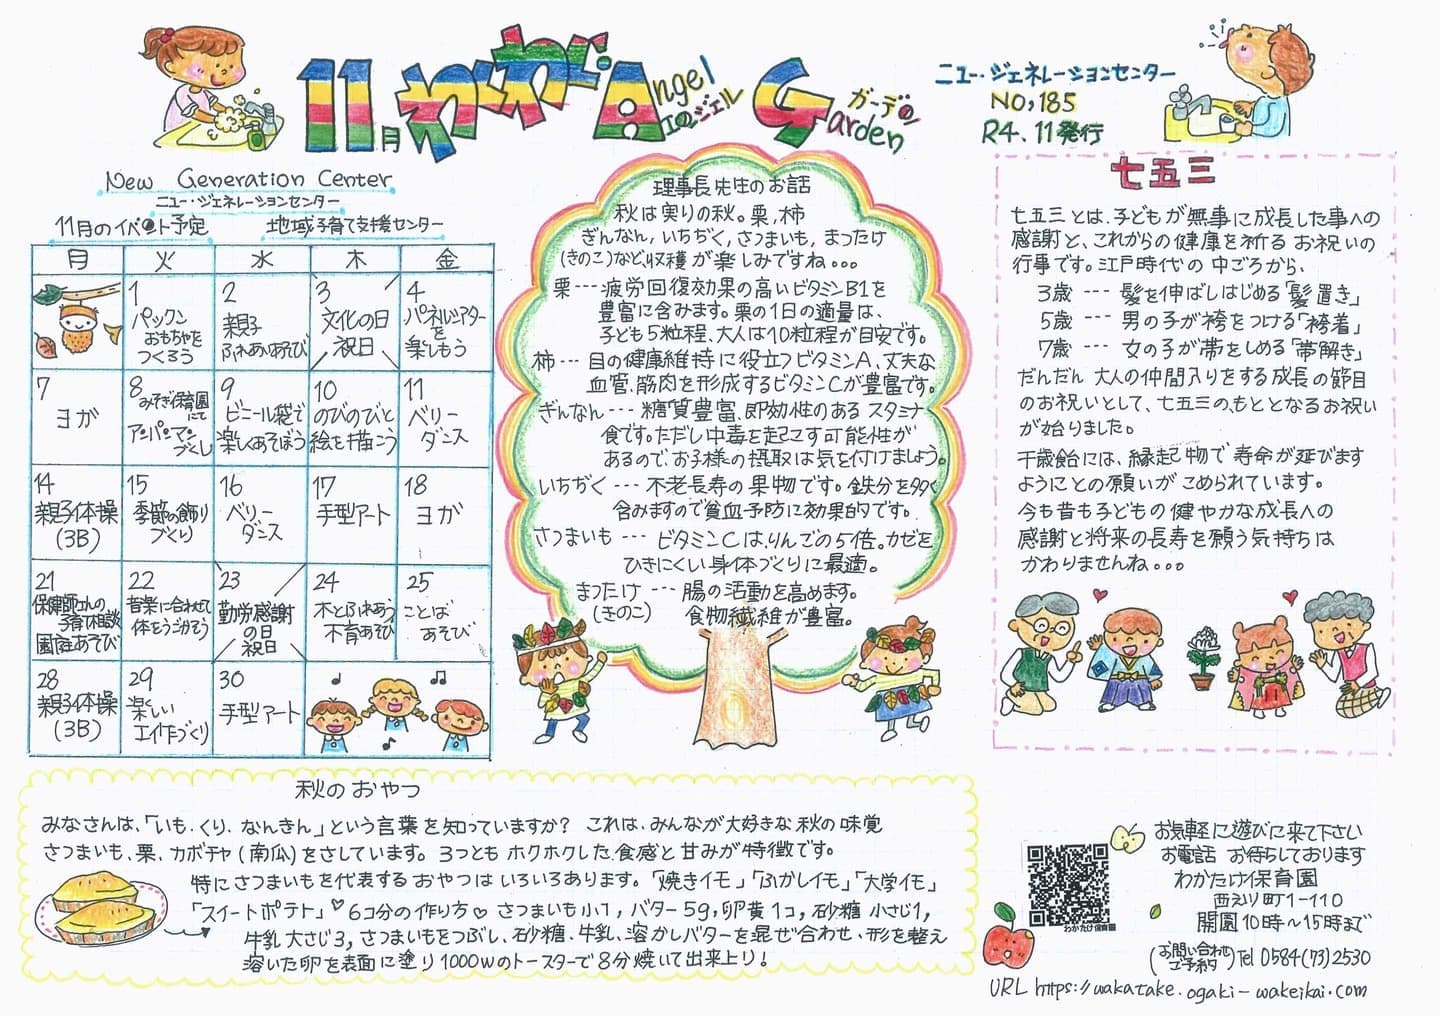 11月 わくわく Angel Garden
エンジェル ガーデン
ニュー・ジェネレーションセンター
NO,185
R4.11発行
New Generation Center
ニュー・ジェネレーションセンター
11月のイベント予定 地域子育て支援センター
月 火 水 木 金
1 パックンおもちゃをつくろう
2 親子ふれあいあそび
3 文化の日 祝日
4 パネルシアターを楽しもう
7 ヨガ
8 みそぎ保育園にて アンパンマンづくし
9 ビニール袋で楽しくあそぼう
10 のびのびと絵を描こう
11 ベリーダンス
14 親子体操(3B)
15 季節の飾りづくり
16 ベリーダンス
17 手型アート
18 ヨガ
21 保健師さんの子育て相談 園庭あそび
22 音楽に合わせて体をうごかそう
23 勤労感謝の日 祝日
24 木とふれあう木育あそび
25 ことばあそび
28 親子体操(3B)
29 楽しい工作づくり
30 手型アート
理事長先生のお話
秋は実りの秋。栗,柿
ぎんなん,いちぢく,さつまいも,まつたけ
(きのこ)など収穫が楽しみですね。。。
栗---疲労回復効果の高いビタミンB1を
豊富に含みます。栗の1日の適量は、
子ども5粒程、大人は10粒程が目安です。
柿---目の健康維持に役立つビタミンA、丈夫な
血管、筋肉を形成するビタミンCが豊富です。
ぎんなん---糖質豊富、即効性のあるスタミナ
食です。ただし中毒を起こす可能性が
あるので、お子様の摂取は気を付けましょう。
いちぢく---不老長寿の果物です。鉄分を多く
含みますので貧血予防に効果的です。
さつまいも---ビタミンCは、りんごの5倍。カゼを
ひきにくい身体づくりに最適。
まつたけ---腸の活動を高めます。
(きのこ) 食物繊維が豊富。
七五三
七五三とは、子どもが無事に成長した事への
感謝と、これからの健康を祈るお祝いの
行事です。江戸時代の中ごろから、
3歳---髪を伸ばしはじめる「髪置き」
5歳---男の子が袴をつける「袴着」
7歳---女の子が帯をしめる「帯解き」
だんだん大人の仲間入りをする成長の節目
のお祝いとして、七五三の、もととなるお祝い
が始りました。
千歳飴には、縁起物で寿命が延びます
ようにとの願いがこめられています。
今も昔も子どもの健やかな成長への
感謝と将来の長寿を願う気持ちは
かわりませんね。。。
秋のおやつ
みなさんは、「いも.くり.なんきん」という言葉を知っていますか? これは、みんなが大好きな秋の味覚
さつまいも、栗、カボチャ(南瓜)をさしています。3つともホクホクした食感と甘みが特徴です。
特にさつまいもを代表するおやつはいろいろあります。「焼きイモ」「ふかしイモ」「大学イモ」
「スイートポテト」♡6コ分の作り方♡さつまいも小1,バター5g,卵黄1コ,砂糖小さじ1,
牛乳大さじ3,さつまいもをつぶし、砂糖、牛乳、溶かしバターを混ぜ合わせ、形を整え
溶いた卵を表面に塗り1000Wのトースターで8分焼いて出来上り!
わかたけ保育園
お気軽に遊びに来て下さい
お電話 お待ちしております
わかたけ保育園
西外川町1-110
開園10時~15時まで
(お問い合わせ ご予約) Tel 0584(73)2530
URL https://wakatake.ogaki-wakeikai.com